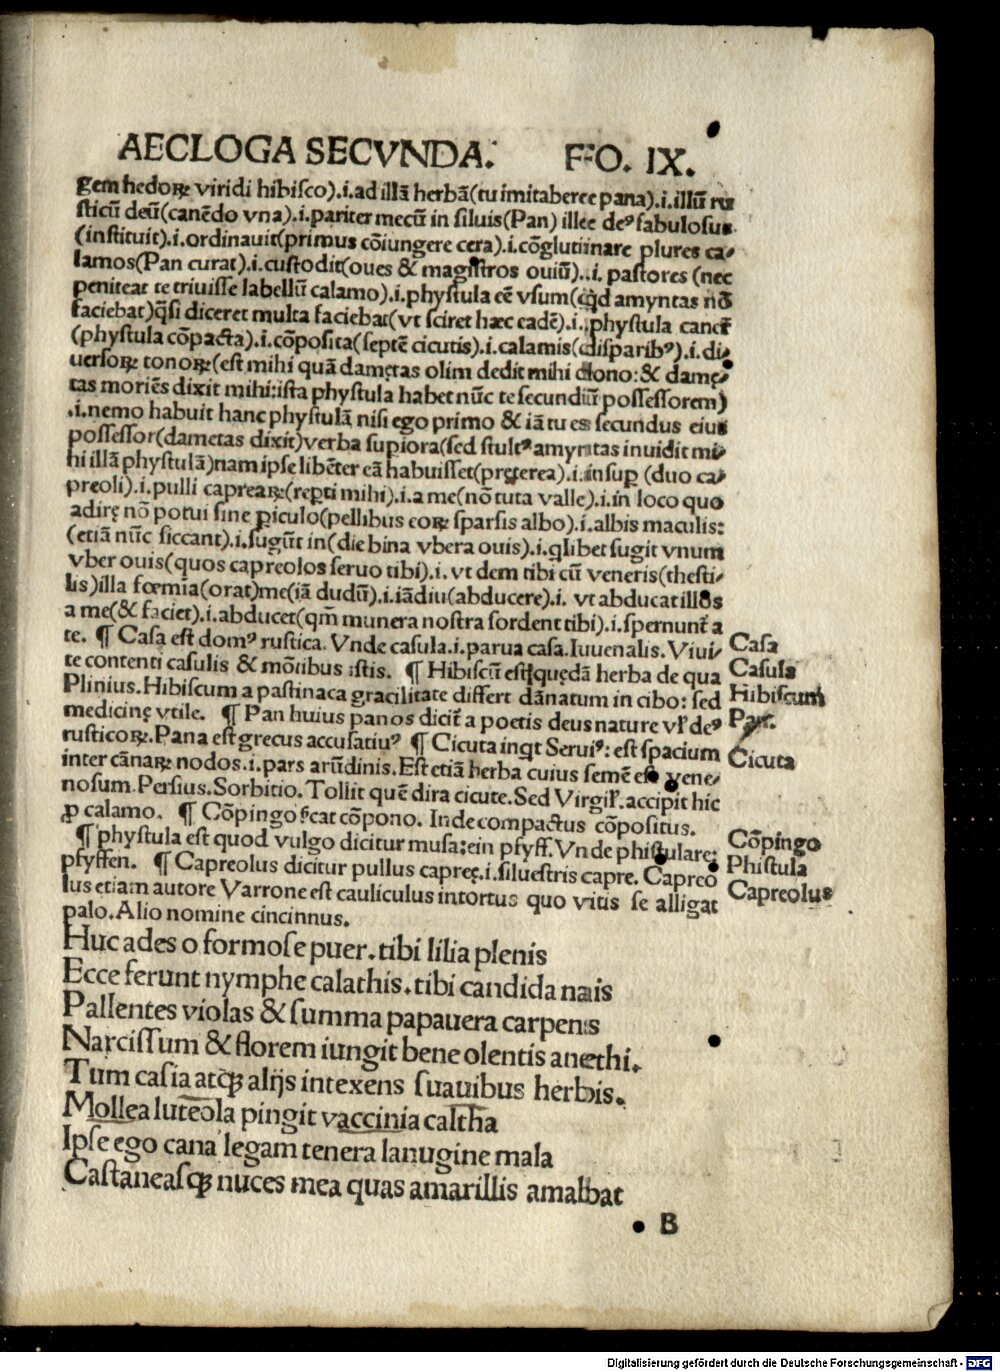 AECLOGA SECVNDA. FO. IX.
gem hedoꝝ viridi hibiſco).i.ad illā herbā(tu imitabere pana).i.illū ru
ſticū deū(canēdo vna).i.pariter mecū in ſiluis(Pan) ille deꝰ fabuloſus
(inſtituit).i.ordinauit(primus cōiungere cera).i.cōglutinare plures ca⸗
lamos(Pan curat).i.cuſtodit(oues & magiſtros ouiū)..i. paſtores (nec
peniteat te triuiſſe labellū calamo).i.phyſtula eē vſum(qd amyntas nō
faciebat)q̄ſi diceret multa faciebat(vt ſciret hæc eadē).i.phyſtula caneř
(phyſtula cōpacta).i.cōpoſita(ſeptē cicutis).i.calamis(diſparibꝰ).i.di⸗
uerſoꝝ tonoꝝ(eſt mihi quā damętas olim dedit mihi dono: & damę⸗
tas moriēs dixit mihi:iſta phyſtula habet nūc te ſecundū poſſeſſorem)
.i.nemo habuit hanc phyſtulā niſi ego primo & iā tu es ſecundus eius
poſſeſſor(dametas dixit)verba ſupiora(ſed ſtultꝰ amyntas inuidit mi⸗
hi illā phyſtulā)nam ipſe libēter eā habuiſſet(pręterea).i.inſuꝑ (duo ca⸗
preoli).i.pulli capreaꝝ(reꝑti mihi).i.a me(nō tuta valle).i.in loco quo
adirę nō potui ſine ꝑiculo(pellibus eoꝝ ſparſis albo).i.albis maculis:
(etiā nūc ſiccant).i.ſugūt in(die bina vbera ouis).i.qlibet ſugit vnum
vber ouis(quos capreolos ſeruo tibi).i. vt dem tibi cū veneris(theſti⸗
lis)illa fœmīa(orat)me(iā dudū).i.iādiu(abducere).i. vt abducat illos
a me(& faciet).i.abducet(qm̄ munera noſtra ſordent tibi).i.ſpernunt̄ a
te. ¶ Caſa eſt domꝰ ruſtica. Vnde caſula.i.parua caſa. Iuuenalis. Viui⸗
te contenti caſulis & mōtibus iſtis. ¶ Hibiſcū eſt quędā herba de qua
Plinius. Hibiſcum a paſtinaca gracilitate differt dānatum in cibo: ſed
medicinę vtile. ¶ Pan huius panos dicit̄ a poetis deus nature vł deꝰ
ruſticoꝝ. Pana eſt grecus accuſatiuꝰ ¶ Cicuta inqt Seruiꝰ: eſt ſpacium
inter cānaꝝ nodos.i.pars arūdinis. Eſt etiā herba cuius ſemē eſt vene⸗
noſum. Perſius. Sorbitio. Tollit quē dira cicute. Sed Virgił. accipit hic
ꝓ calamo. ¶ Cōpingo ſcat cōpono. Inde compactus cōpoſitus.
¶ phyſtula eſt quod vulgo dicitur muſa:ein pfyff. Vnde phiſtulare:
pfyffen. ¶ Capreolus dicitur pullus capreę.i.ſilueſtris capre. Capreo
lus etiam autore Varrone eſt cauliculus intortus quo vitis ſe alligat
palo. Alio nomine cincinnus.
Caſa
Caſula
Hibiſcum
Pan.
Cicuta
Cōpingo
Phiſtula
Capreolus
Huc ades o formoſe puer. tibi lilia plenis
Ecce ferunt nymphe calathis. tibi candida nais
Pallentes violas & ſumma papauera carpens
Narciſſum & florem iungit bene olentis anethi.
Tum caſia atqꝫ alijs intexens ſuauibus herbis.
Mollea luteola pingit vaccinia caltha
Ipſe ego cana legam tenera lanugine mala
Caſtaneaſqꝫ nuces mea quas amarillis amabat
B
Digitalisierung gefördert durch die Deutsche Forschungsgemeinschaft - DFG